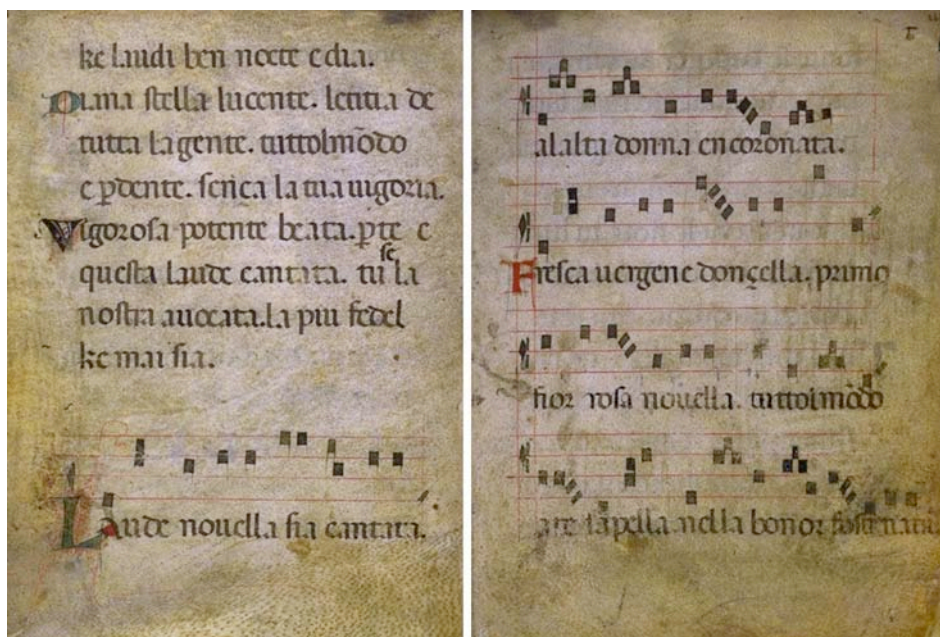 ke laudi ben nocte e dia.
Diana stella lucente. letitia de
tutta la gente. tuttolmōdo
e ꝑdente. sença la tua uigoria.
Vigorosa potente beata. ꝑ te e
questa laude cantata. tu se la
nostra auocata. la piu fedel
ke mai sia.
Laude nouella sia cantata.
al alta donna encoronata.
Fresca uergene donçella. primo
fior rosa nouella. tuttolmōdo
a te sapella. nella bonor fosti nata